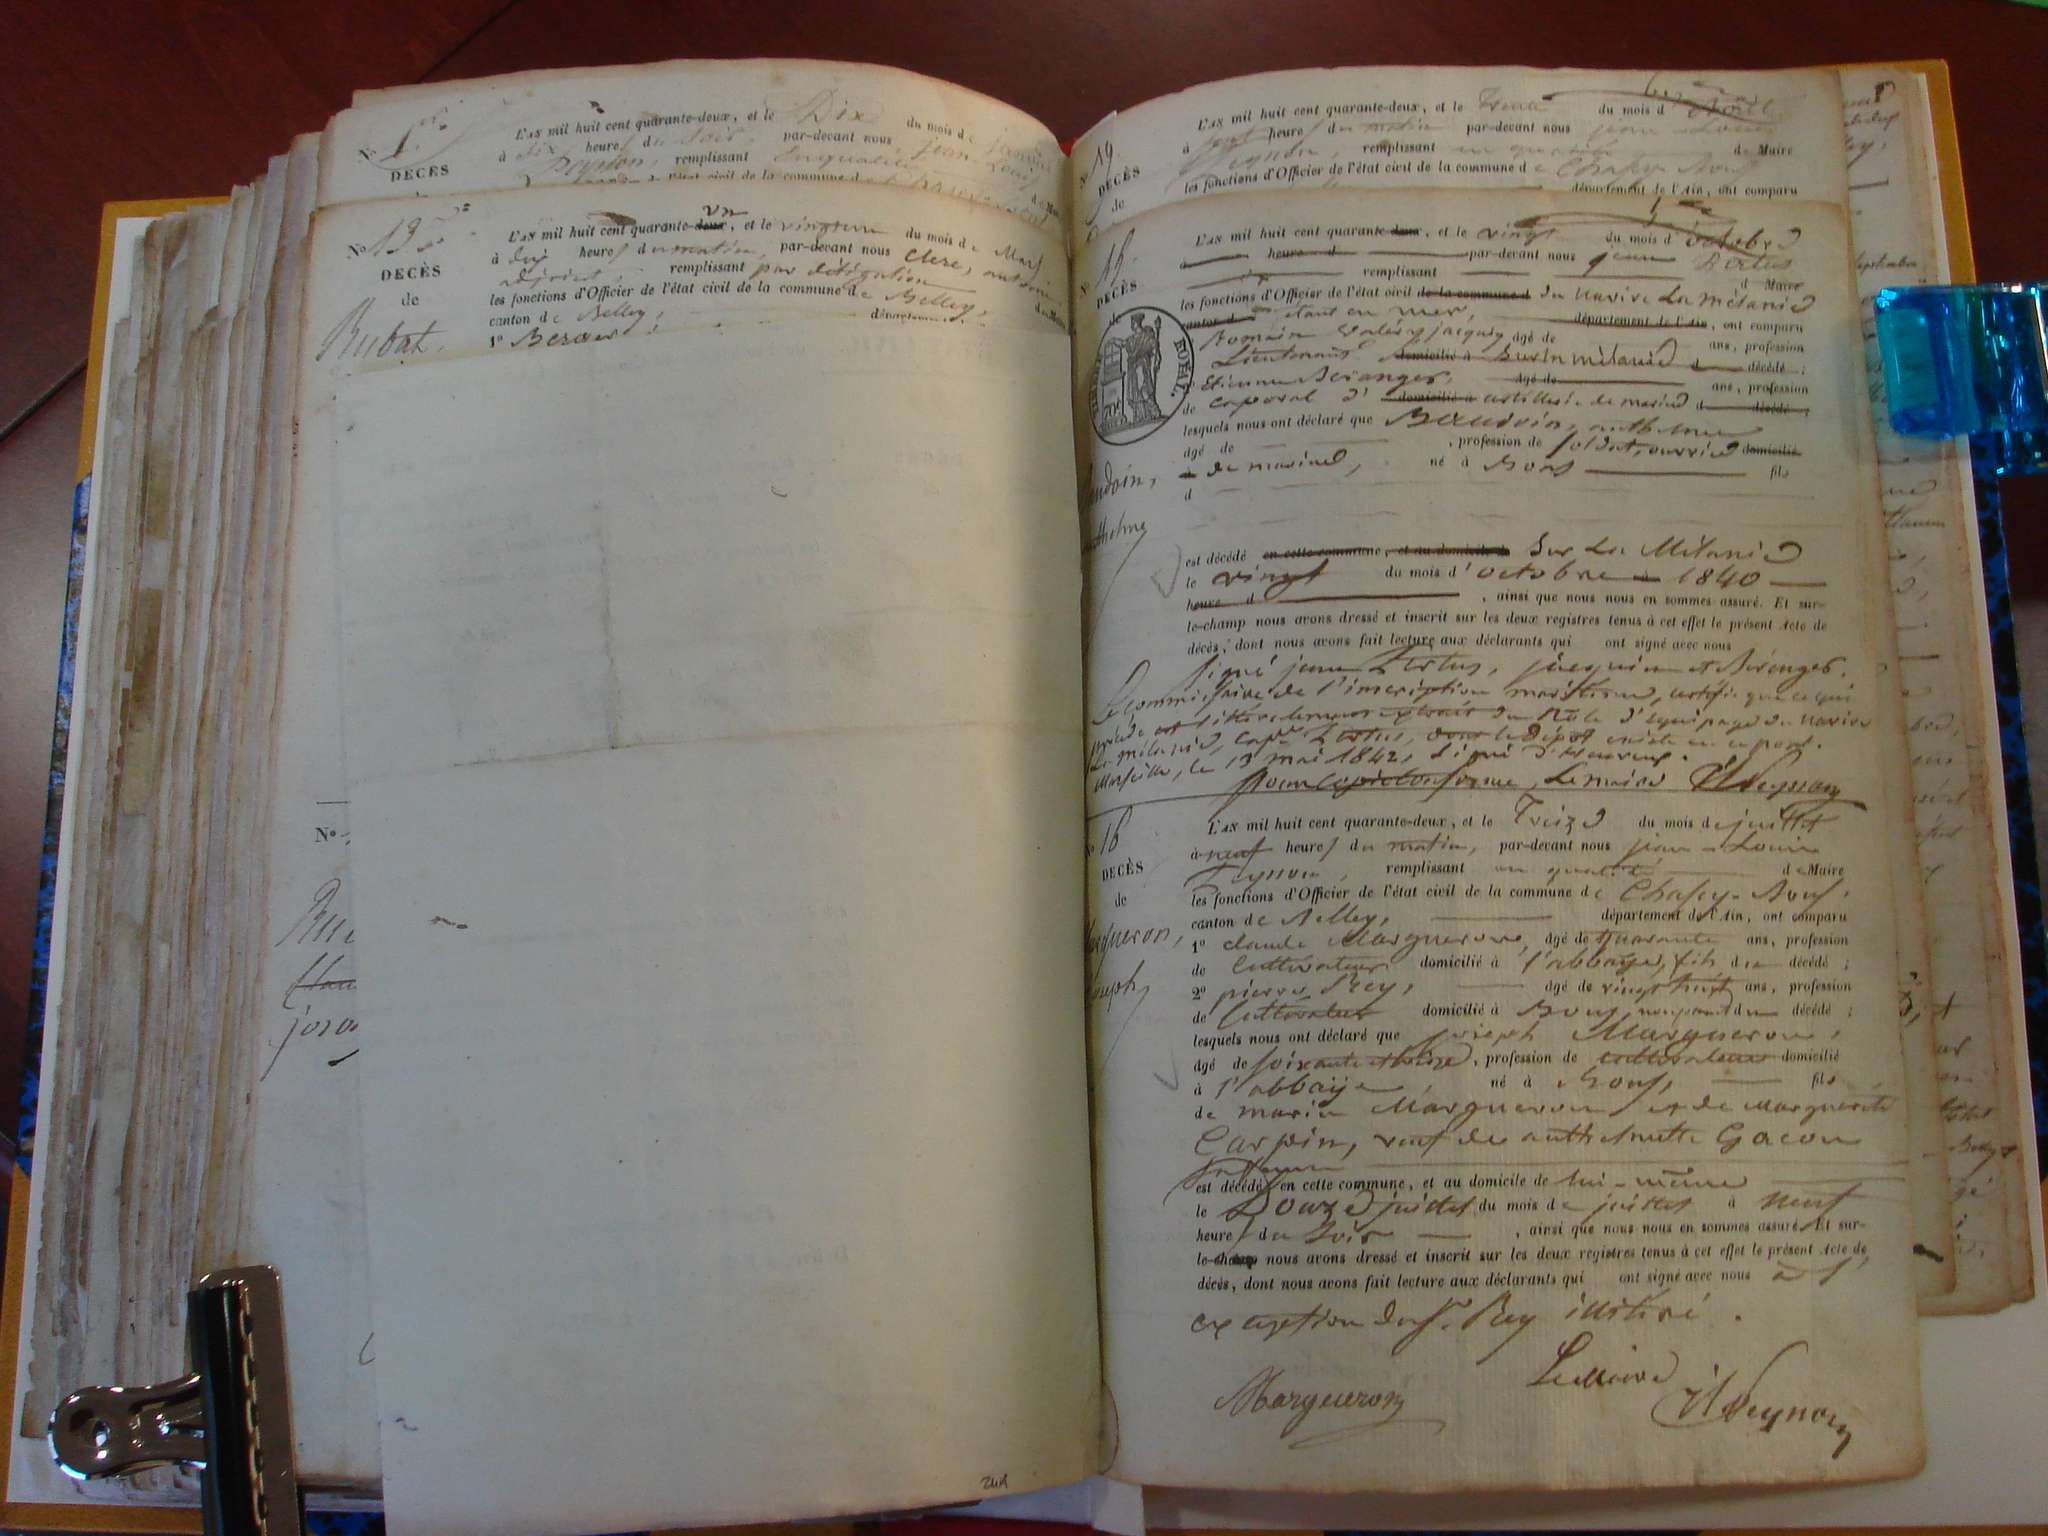 No 1.er
DECÈS
L'AN mil huit cent quarante-deux, et le Dix du mois de janvier
à dix heures du soir, par-devant nous jean Louis
Peynon, remplissant en qualité de Maire
No 13
DECÈS
de
Rubat.
L'AN mil huit cent quarante-deux un, et le vingt un du mois de Mars
à dix heures du matin, par-devant nous Clerc, antoine
adjoint, remplissant par délégation du Maire
les fonctions d'Officier de l'état civil de la commune de Belley,
canton de Belley, département
1o Berger
No
josep
244
No 19.
DECÈS
de
L'AN mil huit cent quarante-deux, et le Treize du mois d' Août
à sept heures du matin par-devant nous jean-Louis
Peynon, remplissant en qualité de Maire
les fonctions d'Officier de l'état civil de la commune de Chazey-Bons
département de l'Ain, ont comparu
15.
DECÈS
de
Baudoin,
anthelme
L'AN mil huit cent quarante-deux, et le vingt du mois d'octobre
à heure d par-devant nous jean Bertus
remplissant d Maire
les fonctions d'Officier de l'état civil de la commune d du navire La mélanie
canton d étant en mer, département de l'Ain, ont comparu
Romain Valéry jacquin âgé de ans, profession
Lieutenant domicilié à Burin mélanie d décédé ;
Etienne Béranger, âgé de ans, profession
de caporal d' domicilié à artillerie de marine d décédé ;
lesquels nous ont déclaré que Baudoin, anthelme
âgé de , profession de soldat, ouvrier domicilié
à de marine, né à Bons fils
d
est décédé en cette commune, et au domicile d Sur La Mélanie
le vingt du mois d'octobre à 1840
heure d , ainsi que nous nous en sommes assuré. Et sur-
le-champ nous avons dressé et inscrit sur les deux registres tenus à cet effet le présent Acte de
décès ; dont nous avons fait lecture aux déclarants qui ont signé avec nous
signé jean Bertus, jacquin et Béranger.
Le commissaire de l'inscription maritime, certifie que ce qui
précède est littéralement extrait du Rôle d'équipage du navire
La mélanie, capne Bertus, dont le dépot existe en ce port.
Marseille, le 13 mai 1842, signé
pour copie conforme, Le maire JLPeynon
No 16
DECÈS
de
Margueron,
joseph,
L'AN mil huit cent quarante-deux, et le Treize du mois de juillet
à neuf heures du matin, par-devant nous jean-Louis
Peynon, remplissant en qualité de Maire
les fonctions d'Officier de l'état civil de la commune de Chazey-Bons,
canton de Belley, département de l'Ain, ont comparu
1o claude Margueron, âgé de quarante ans, profession
de Cultivateur domicilié à l'abbaye, fils du décédé ;
2o pierre Rey, âgé de vingt huit ans, profession
de Cultivateur domicilié à Bons, non parent du décédé ;
lesquels nous ont déclaré que joseph Margueron,
âgé de soixante et treize, profession de cultivateur domicilié
à l'abbaye, né à Bons, fils
de marin Margueron et de marguerite
Carpin, veuf de anthelmette Gacon
est décédé en cette commune, et au domicile de lui-même
le Douze juillet du mois de juillet à neuf
heures du soir , ainsi que nous nous en sommes assuré. Et sur-
le-champ nous avons dressé et inscrit sur les deux registres tenus à cet effet le présent Acte de
décès, dont nous avons fait lecture aux déclarants qui ont signé avec nous à l'
exception du sr. Rey illitéré.
Le Maire
Margueron JLPeynon